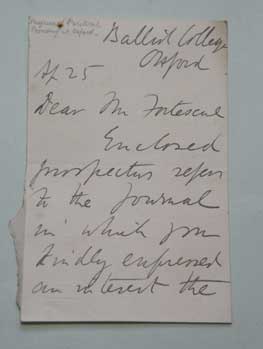 Balliol College
Oxford
Ap 25
Dear Mr Fortescue
Enclosed
prospectus refers
to the Journal
in which you
kindly expressed
an interest the